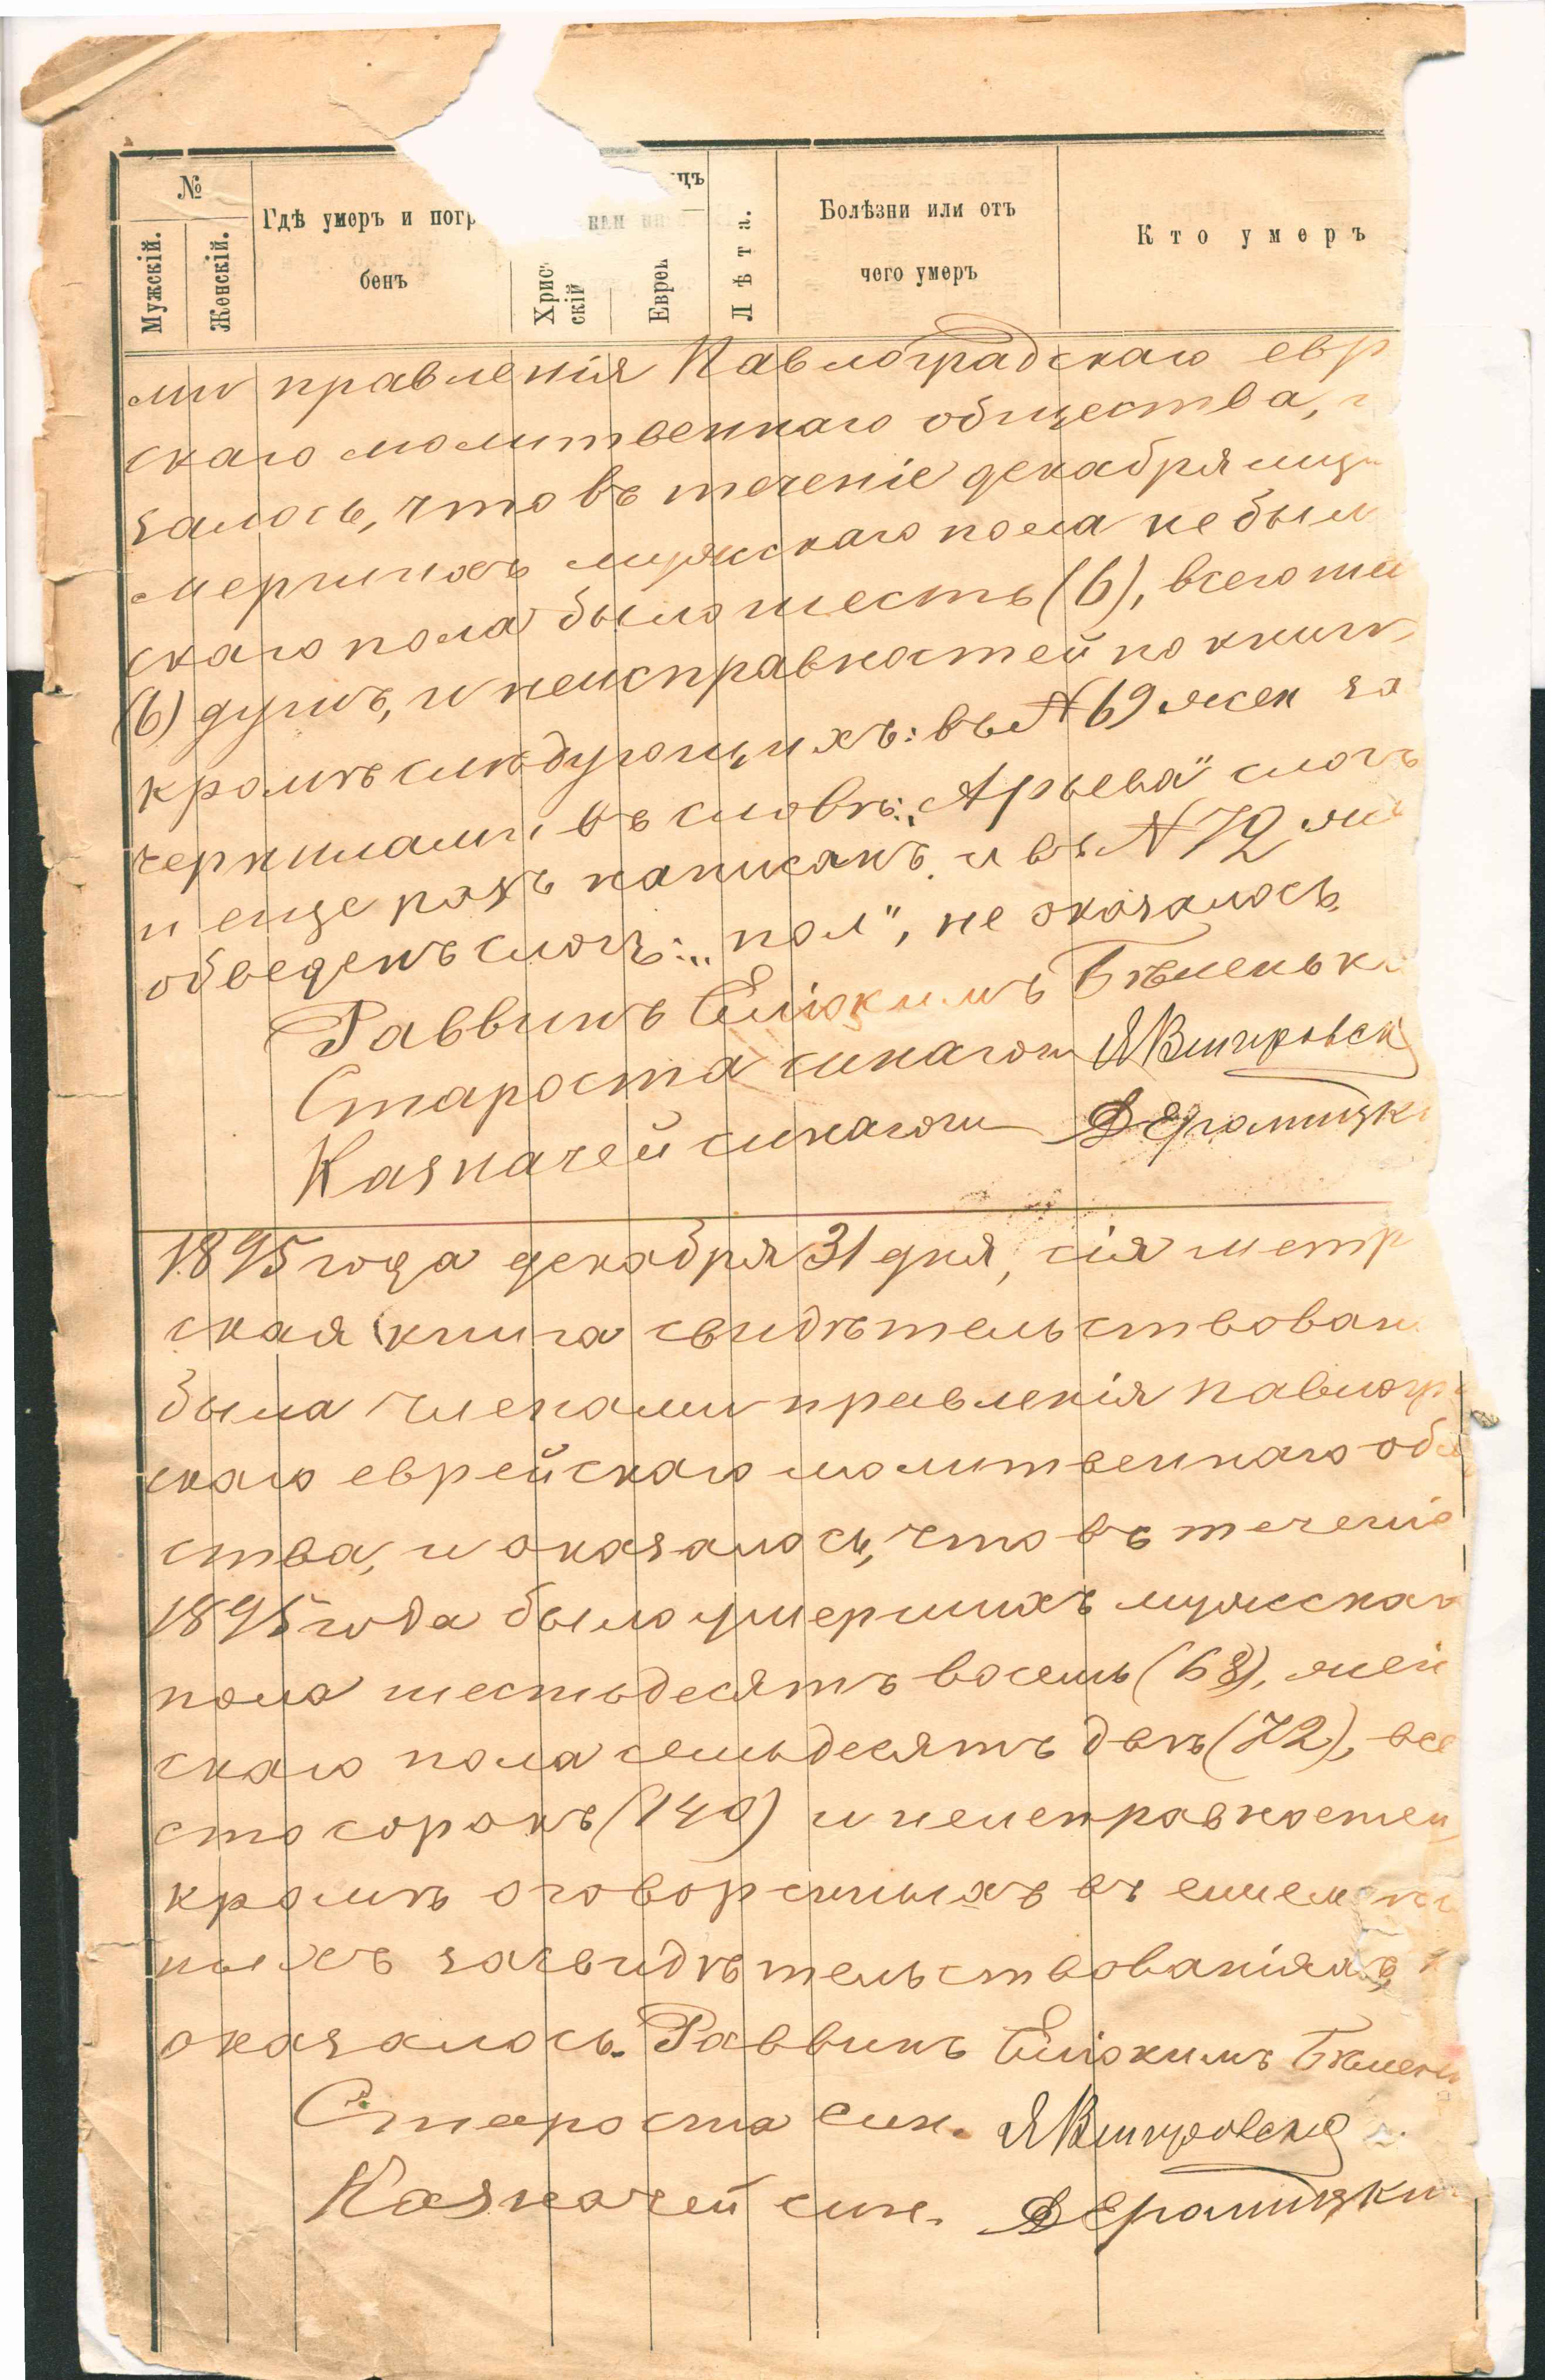 №
Мужскій.
Женскій.
Гдѣ умеръ и погр
бенъ
цъ
Христ
скій
Еврей
Лѣта.
Болѣзни или отъ
чего умеръ
Кто умеръ
ми правленія Павлоградскаго евр
скаго молитвеннаго общества,
залось, что въ теченіе декабря мця
мершихъ мужскаго пола не был
скаго пола было шесть (6), всего ше
(6) душъ, и неисправностей по книгѣ
кромѣ слѣдующихъ: въ № 69 жен за
чернилами въ словѣ: „Арьева" слогъ
и еще разъ написанъ и въ № 72 же
обведенъ слогъ: „пол", не оказалось.
Раввинъ Еліокимъ Бѣленьк
Староста синагоги
Казначей синагоги
1895 года декабря 31 дня, сія метр
ская книга свидѣтельствован
была членами правленія Павлогр
скаго еврейскаго молитвеннаго общ
ства, и оказалось, что въ теченіе
1895 года было умершихъ мужскаг
пола шестьдесятъ восемь (68), жен
скаго пола семьдесятъ двѣ (72), все
сто сорокъ (140) и неисправностей
кромѣ оговоренныхъ въ ежем
ныхъ засвидѣтельствованіяхъ,
оказалось. Раввинъ Еліокимъ Бѣлень
Староста син.
Казначей син.